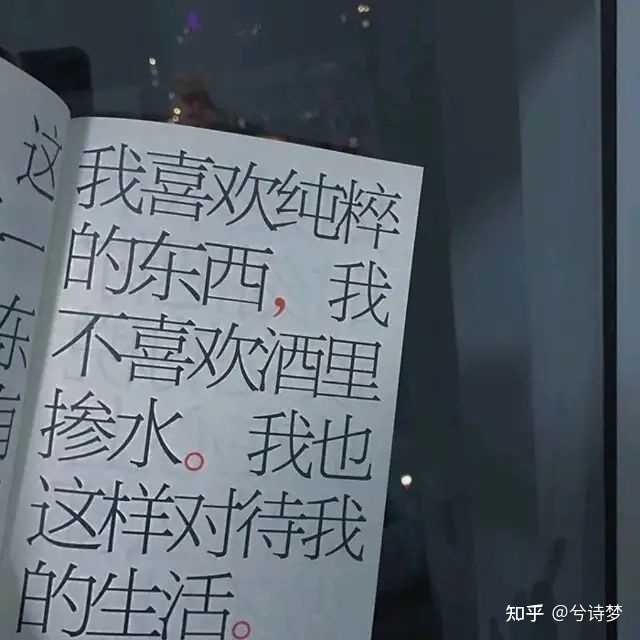 这
一
东
我喜欢纯粹
的东西，我
不喜欢酒里
掺水。我也
这样对待我
的生活。
知乎 @兮诗梦